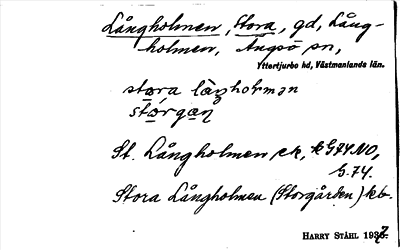 Långholmen, Stora, gd, Lång-
holmen, Ängsö sn,
Yttertjurbo hd, Västmanlands län.
stora
St. Långholmen ek, k G74 NO,
G. 74.
Stora Långholmen (Storgården) kb.
HARRY STÅHL 1937.